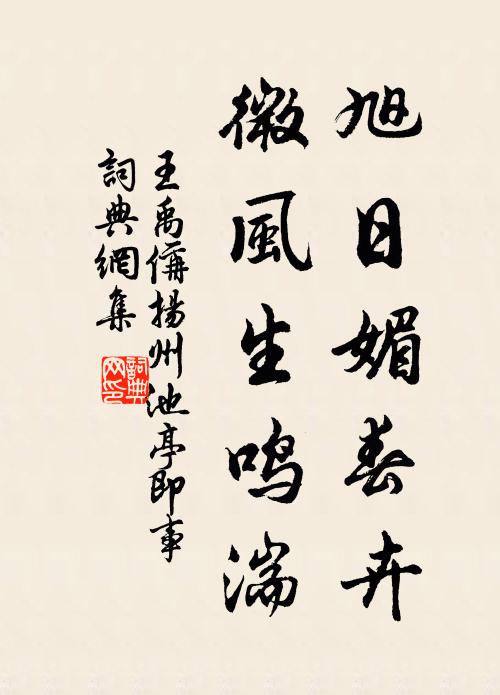 旭日媚春卉
微風生鳴湍
王禹偁揚州池亭即事
詞典網集
詞典網印